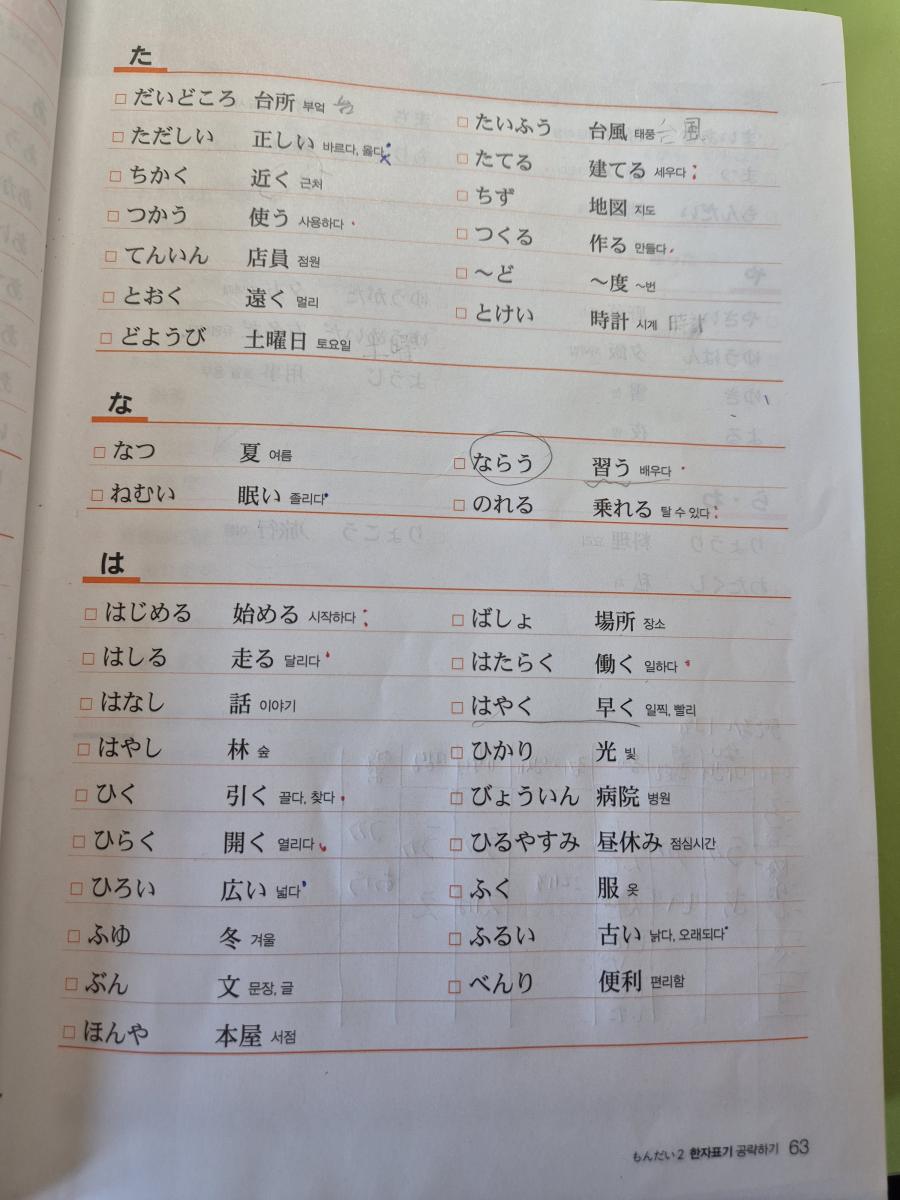 た
だいどころ 台所 부엌 台
ただしい 正しい 바르다, 옳다
ちかく 近く 근처
つかう 使う 사용하다
てんいん 店員 점원
とおく 遠く 멀리
どようび 土曜日 토요일
たいふう 台風 태풍 台風
たてる 建てる 세우다
ちず 地図 지도
つくる 作る 만들다
〜ど 〜度 〜번
とけい 時計 시계
な
なつ 夏 여름
ねむい 眠い 졸리다
ならう 習う 배우다
のれる 乗れる 탈 수 있다
は
はじめる 始める 시작하다
はしる 走る 달리다
はなし 話 이야기
はやし 林 숲
ひく 引く 끌다, 찾다
ひらく 開く 열리다
ひろい 広い 넓다
ふゆ 冬 겨울
ぶん 文 문장, 글
ほんや 本屋 서점
ばしょ 場所 장소
はたらく 働く 일하다
はやく 早く 일찍, 빨리
ひかり 光 빛
びょういん 病院 병원
ひるやすみ 昼休み 점심시간
ふく 服 옷
ふるい 古い 낡다, 오래되다
べんり 便利 편리함
もんだい 2 한자표기 공략하기 63